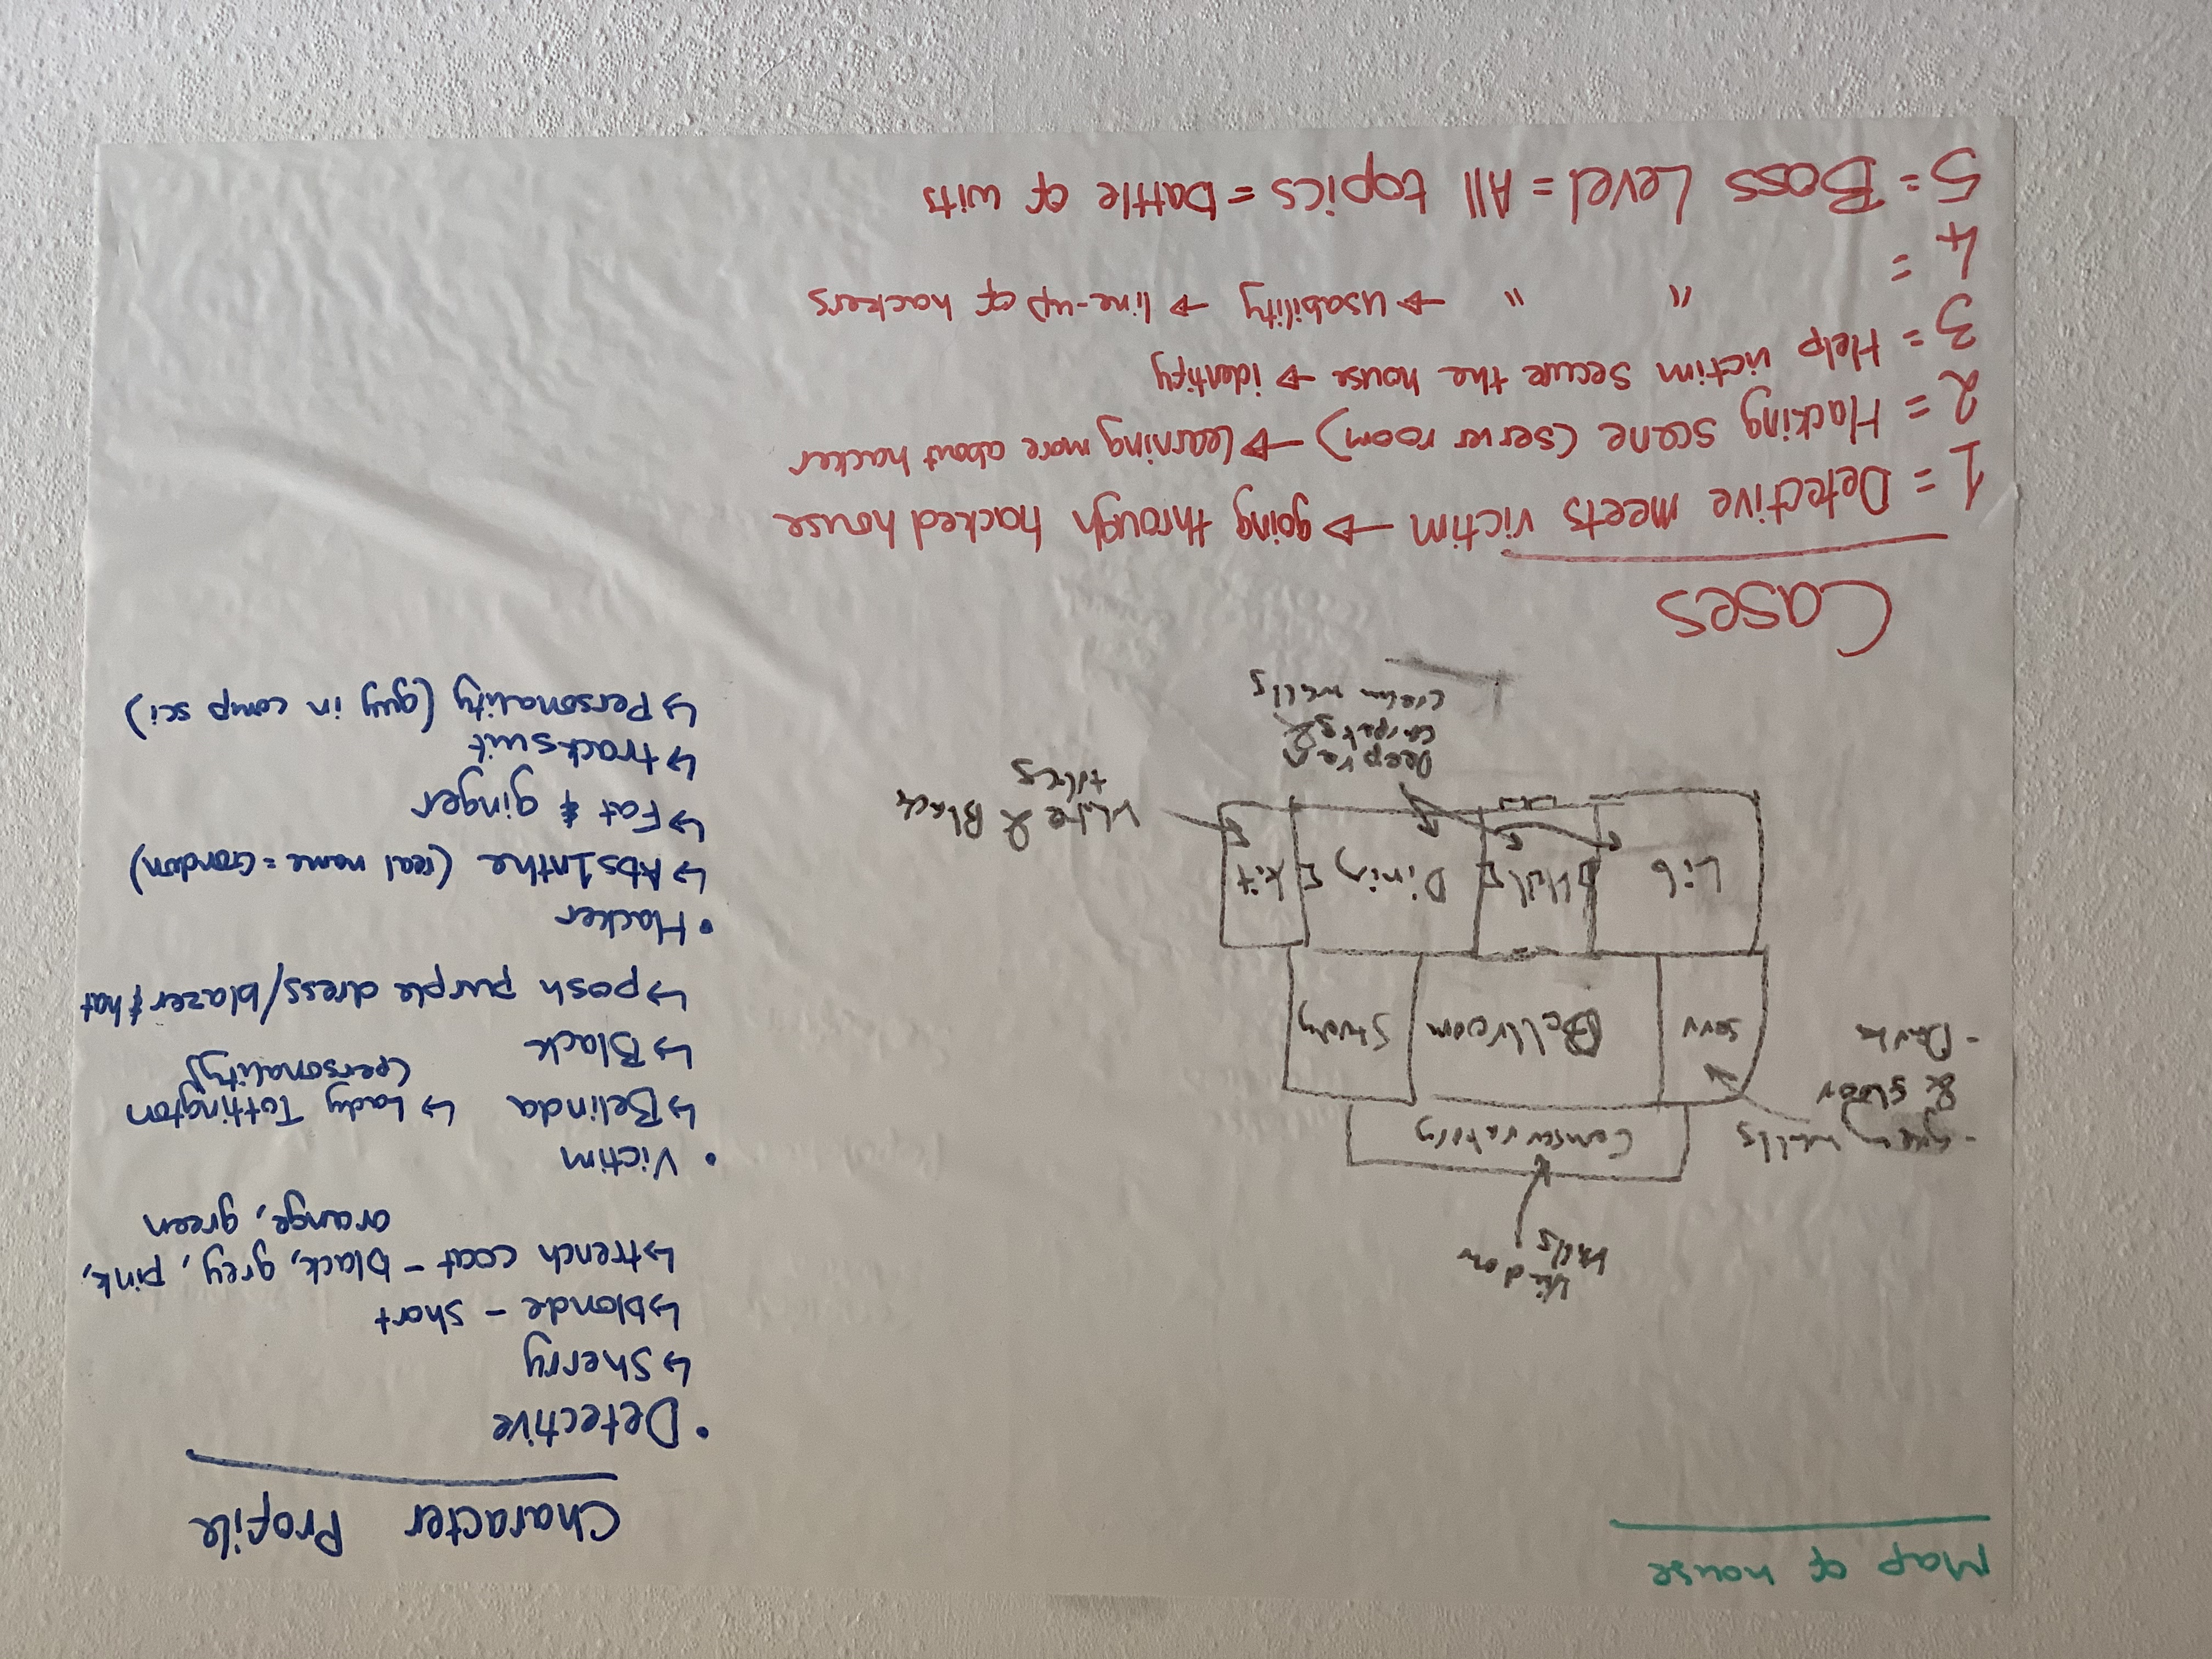 Map of house
Window
Walls
Conservatory
- grey walls
& floor
- Dark
Serv
Ballroom
Study
Lib
Hall
Dining
Kit
White & Black
tiles
Deep
carpets &
cream walls
Character Profile
• Detective
↳ Sherry
↳ blonde - short
↳ trench coat - black, grey, pink,
orange, green
• Victim
↳ Belinda ↳ Lady Tottington
(personality)
↳ Black
↳ posh purple dress/blazer & hat
• Hacker
↳ Abs1nthe (real name = Gordon)
↳ Fat & ginger
↳ tracksuit
↳ Personality (guy in comp sci)
Cases
1 = Detective meets victim → going through hacked house
2 = Hacking scene (server room) → learning more about hacker
3 = Help victim secure the house → identify
4 = " " → usability → line-up of hackers
5 = Boss Level = All topics = battle of wits